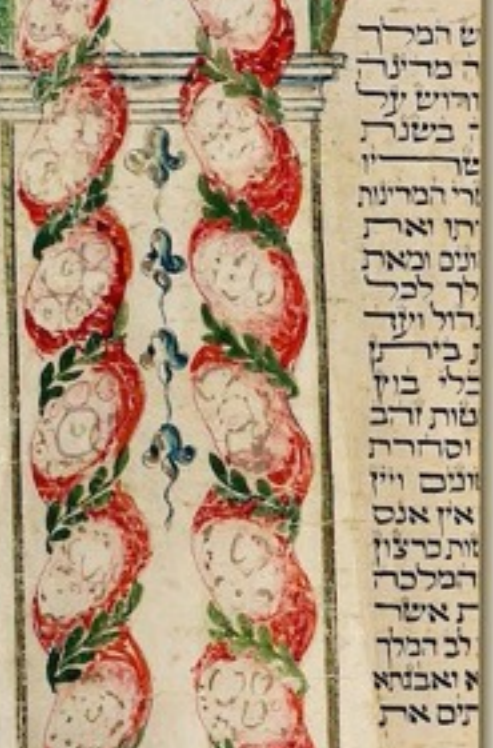 ש המלך
ה מדינה
ורוש על
בשנת
שריו
שרי המדינות
תו ואת
ונים ומאת
לך לכל
דול ועד
ת ביתן
כלי בוץ
טות זהב
וסחרת
ונים ויין
אין אנס
ות כרצון
המלכה
ת אשר
לב המלך
א ואבגתא
תים את